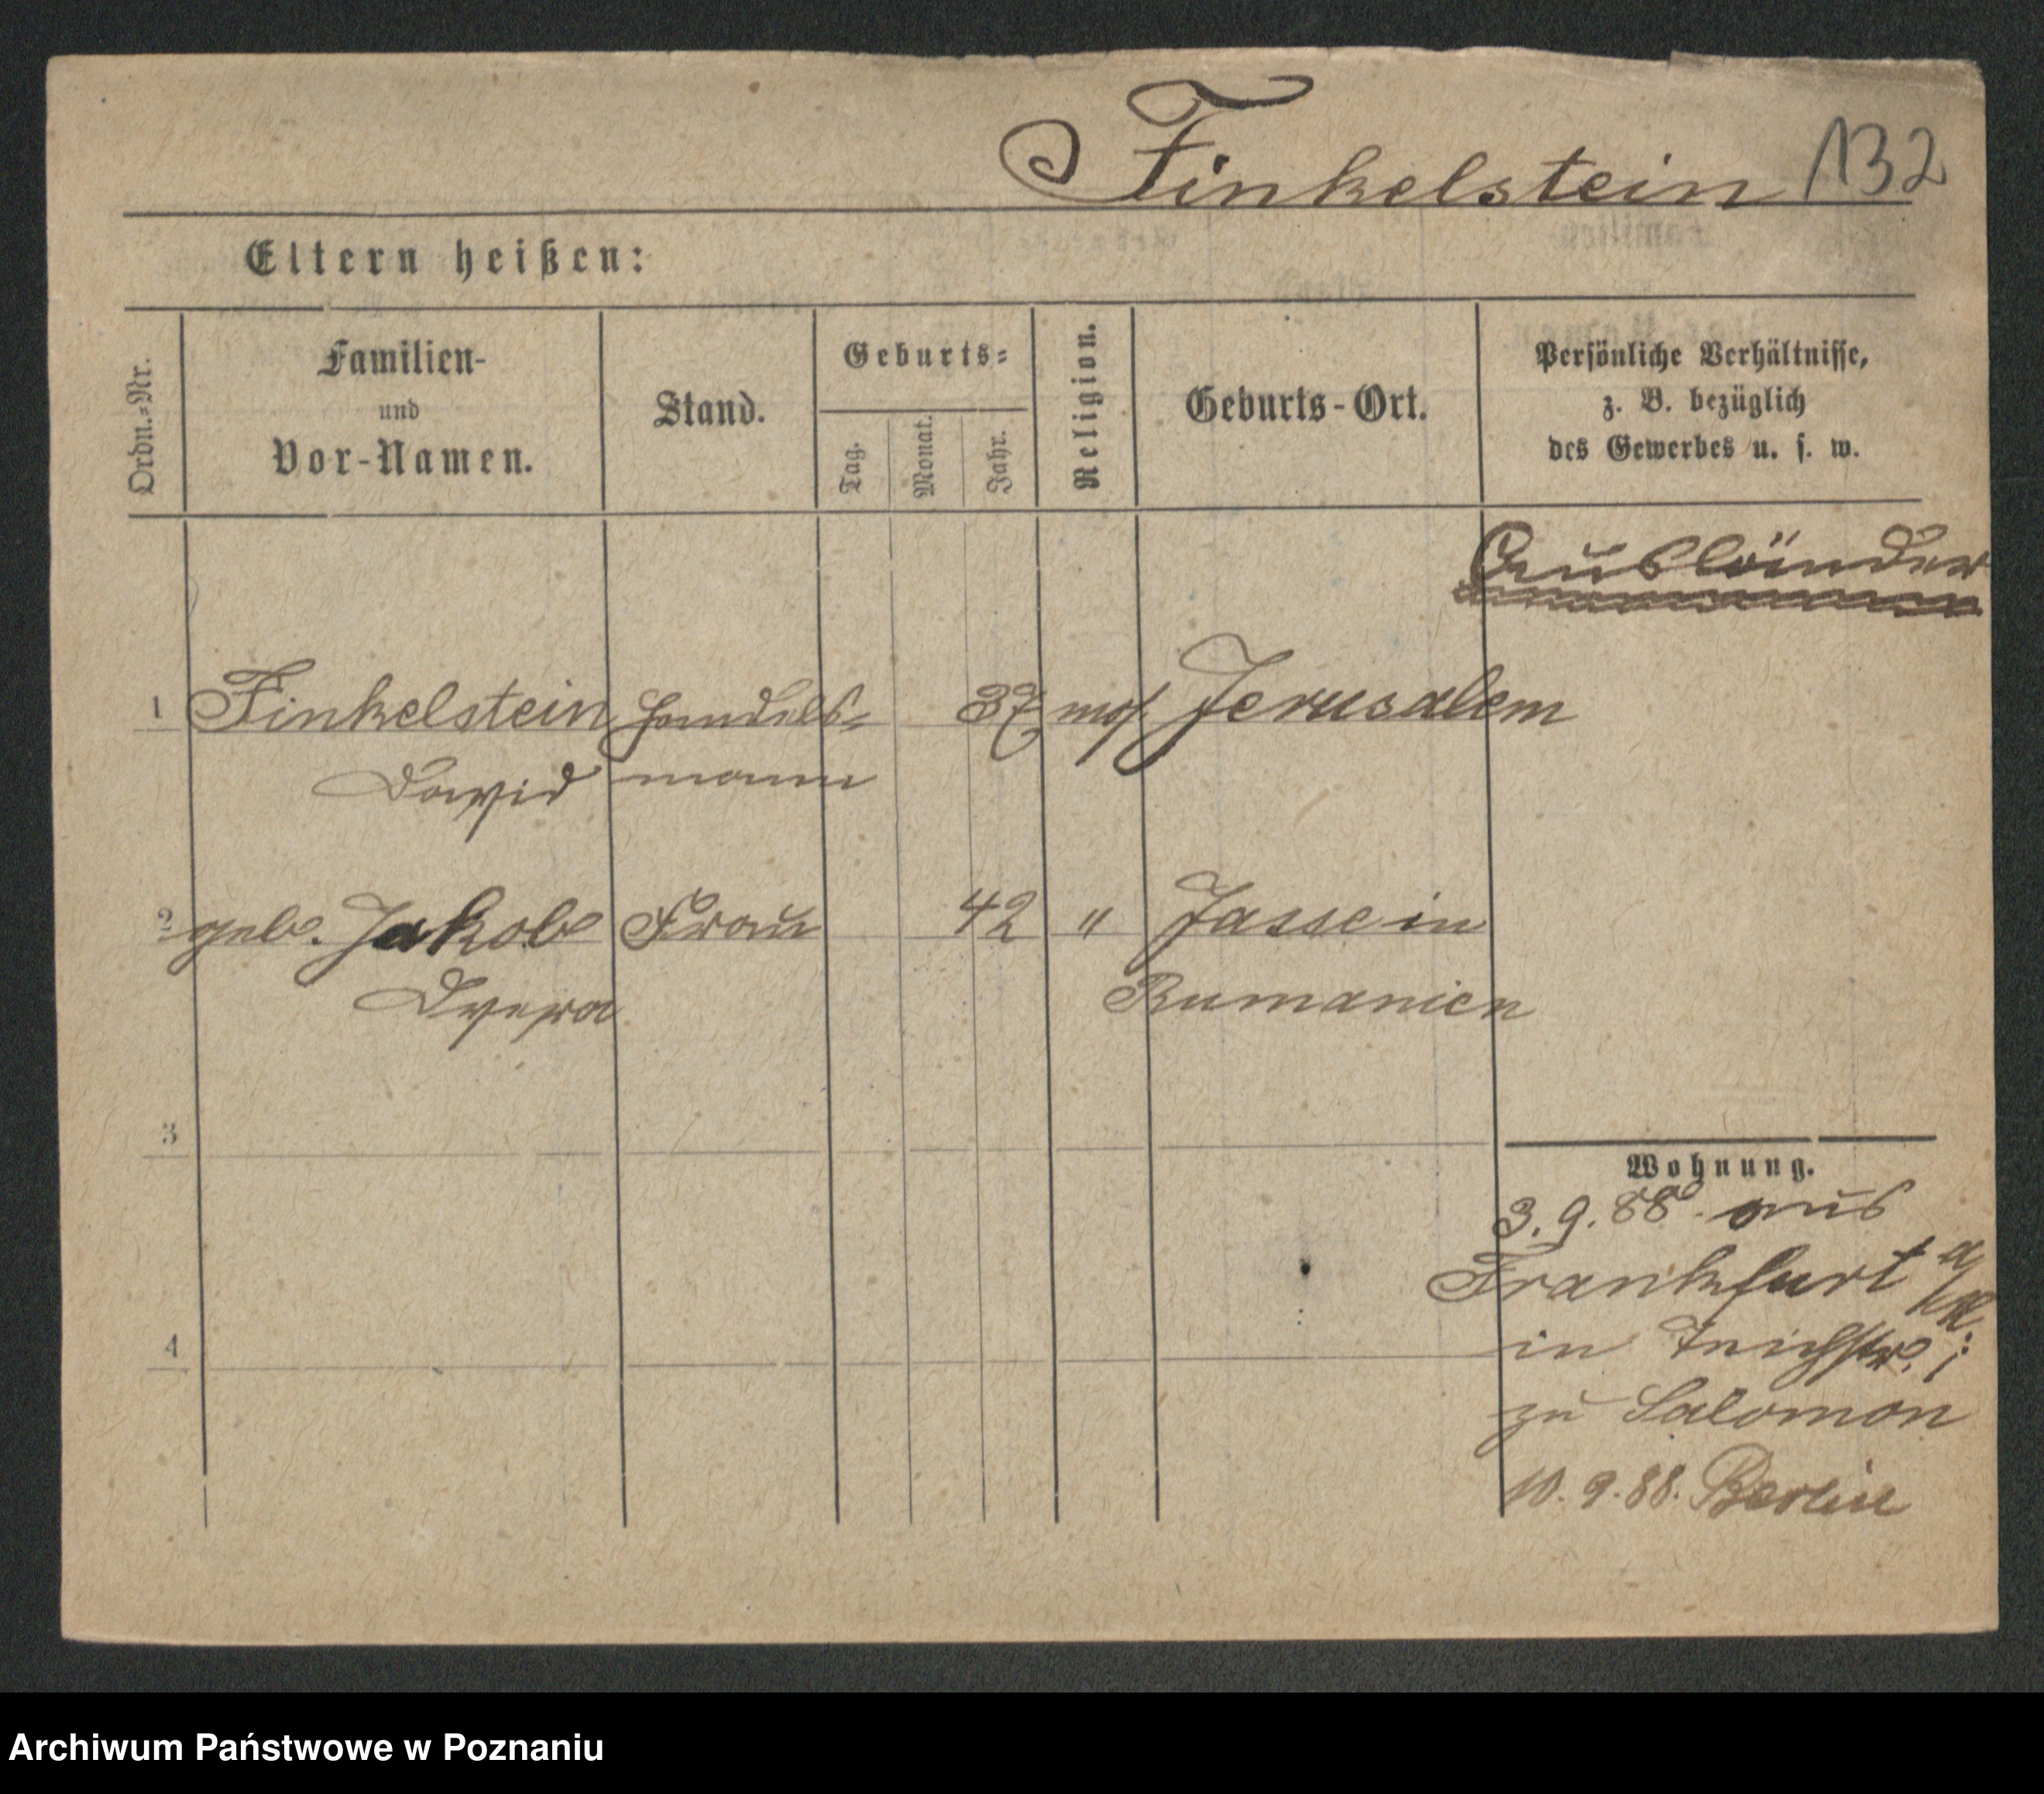 Finkelstein 132
Eltern heißen:
Ordn.-Nr.
Familien-
und
Vor-Namen.
Stand.
Geburts-
Tag.
Monat.
Jahr.
Religion.
Geburts-Ort.
Persönliche Verhältnisse,
z. B. bezüglich
des Gewerbes u. s. w.
Ausländer
1 Finkelstein Handels- 37 mos. Jerusalem
Dawid mann
2 geb. Jakob Frau 42 " Jasse in
Rumanien
3
Wohnung.
3. 9. 88. aus
Frankfurt a/M.
4
in Teichstr.
zu Salomon
10. 9. 88. Berlin
Archiwum Państwowe w Poznaniu